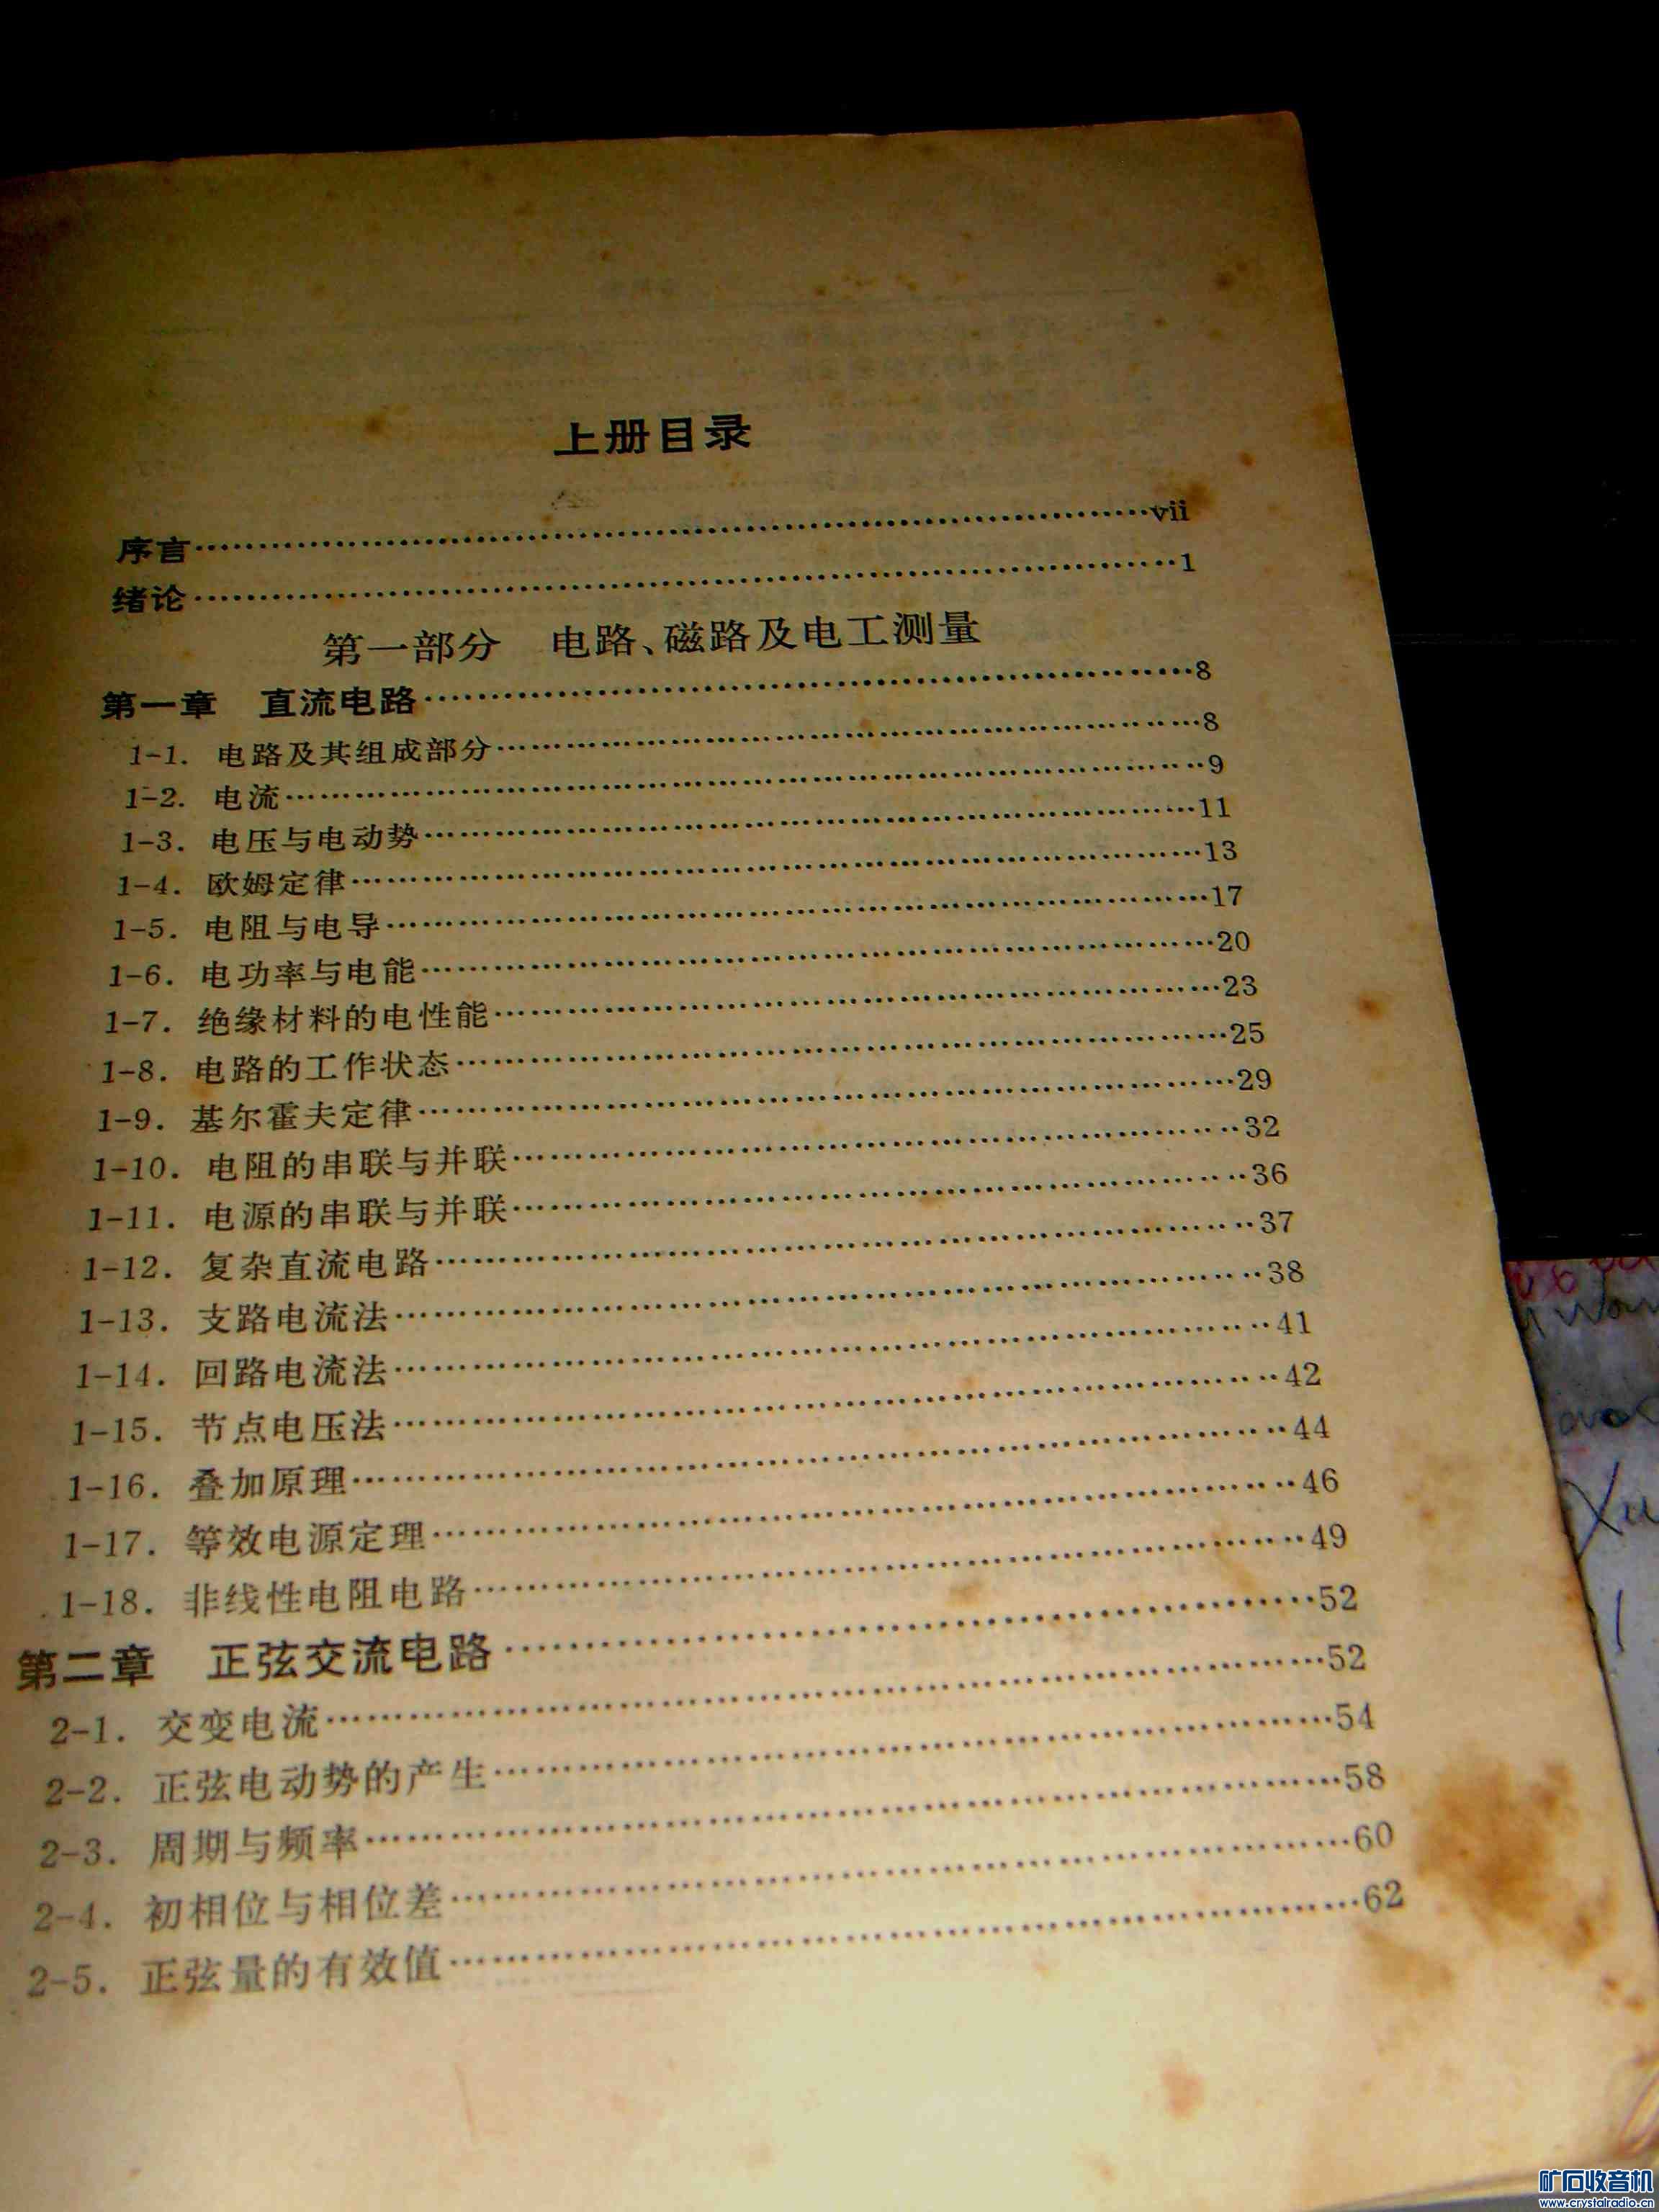 上册目录
序言……vii
绪论……1
第一部分 电路、磁路及电工测量
第一章 直流电路……8
1-1. 电路及其组成部分……8
1-2. 电流……9
1-3. 电压与电动势……11
1-4. 欧姆定律……13
1-5. 电阻与电导……17
1-6. 电功率与电能……20
1-7. 绝缘材料的电性能……23
1-8. 电路的工作状态……25
1-9. 基尔霍夫定律……29
1-10. 电阻的串联与并联……32
1-11. 电源的串联与并联……36
1-12. 复杂直流电路……37
1-13. 支路电流法……38
1-14. 回路电流法……41
1-15. 节点电压法……42
1-16. 叠加原理……44
1-17. 等效电源定理……46
1-18. 非线性电阻电路……49
第二章 正弦交流电路……52
2-1. 交变电流……52
2-2. 正弦电动势的产生……54
2-3. 周期与频率……58
2-4. 初相位与相位差……60
2-5. 正弦量的有效值……62
Xu
矿石收音机
www.crystalradio.cn